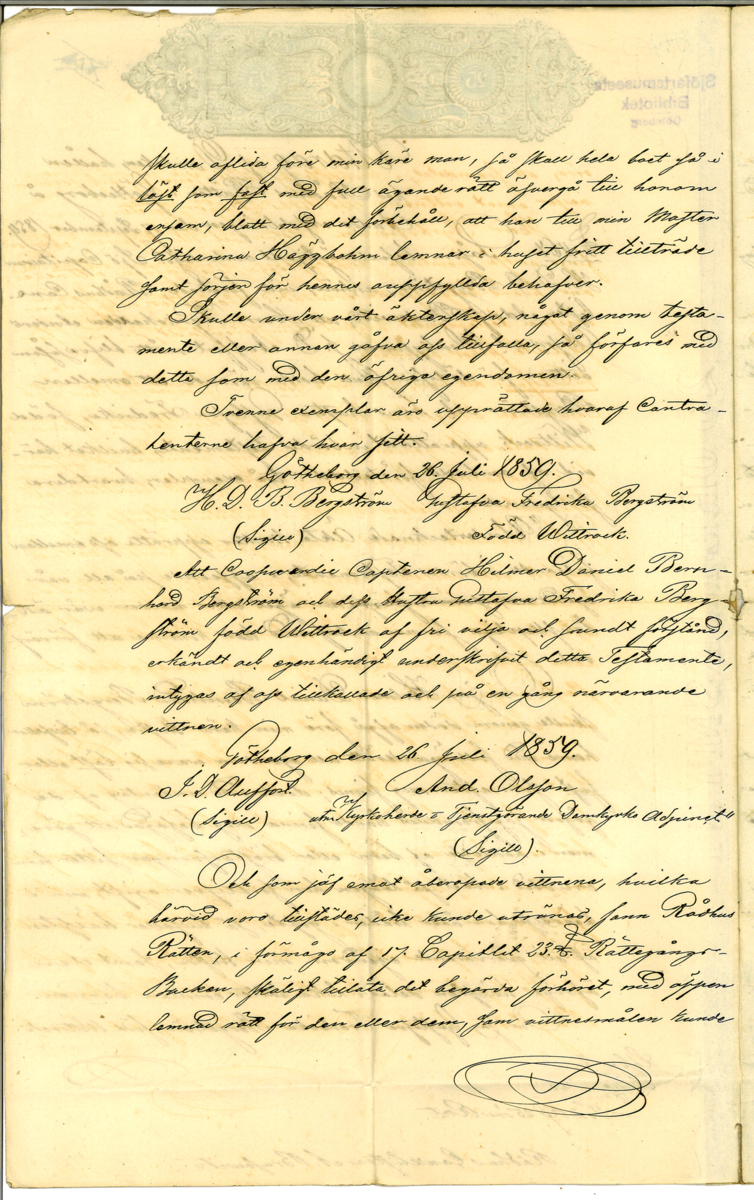 skulle aflida före min käre man, så skall hela boet så i
löst som fast med full ägande rätt öfvergå till honom
ensam, blott med det förbehåll, att han till min Moster
Catharina Häggbohm lemnar i huset fritt tillträde
samt sörjer för hennes ouppfyllda behofver.
Skulle under vårt äktenskap, något genom testa-
mente eller annan gåfva oss tillfalla, så förfares med
detta som med den öfriga egendomen.
Tvenne exemplar äro upprättade hvaraf Contra-
henterne hafva hvar sitt.
Götheborg den 26. Juli 1859.
H. D. B. Bergström Gustafva Fredrika Bergström
(Sigill) Född Wittrock.
Att Coopverdie Captenen Hilmer Daniel Bern-
hard Bergström och dess Hustru Gustafva Fredrika Berg-
ström född Wittrock af fri vilja och sundt förstånd,
erkändt och egenhändigt underskrifvit detta Testamente,
intygas af oss tillkallade och på en gång närvarande
vittnen.
Götheborg den 26 Juli 1859.
J. D. And. Olsson
(Sigill) Kyrkoherde o Tjenstgörande Domkyrko Adjunct"
(Sigill).
Och som jäf emot åberopade vittnena, hvilka
härvid voro tillstädes, icke kunde utrönas, fann Rådhus
Rätten, i förmågo af 17. Capitlet 23. § Rättegångs-
Balken, skäligt tillåta det begärda förhöret, med öppen
lemnad rätt för den eller dem, som vittnesmålen kunde
Sjöfartsmuseets
Bibliotek
Göteborg